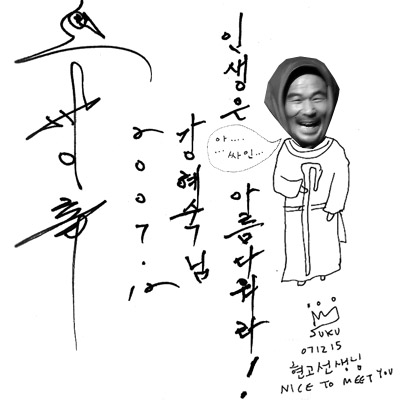 인생은 아름다워라!
강혜숙님
2007.12
아....
...싸인...
SUKU
071215
현고선생님
NICE TO MEET YOU